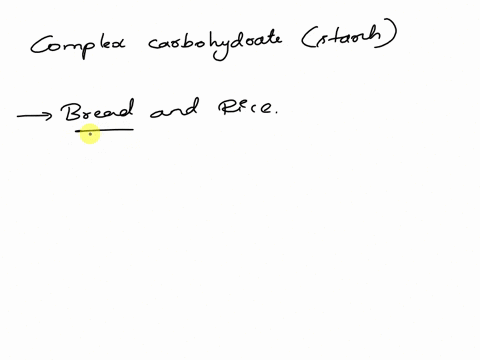 Complex carbohydrate (starch)
→ Bread and Rice.